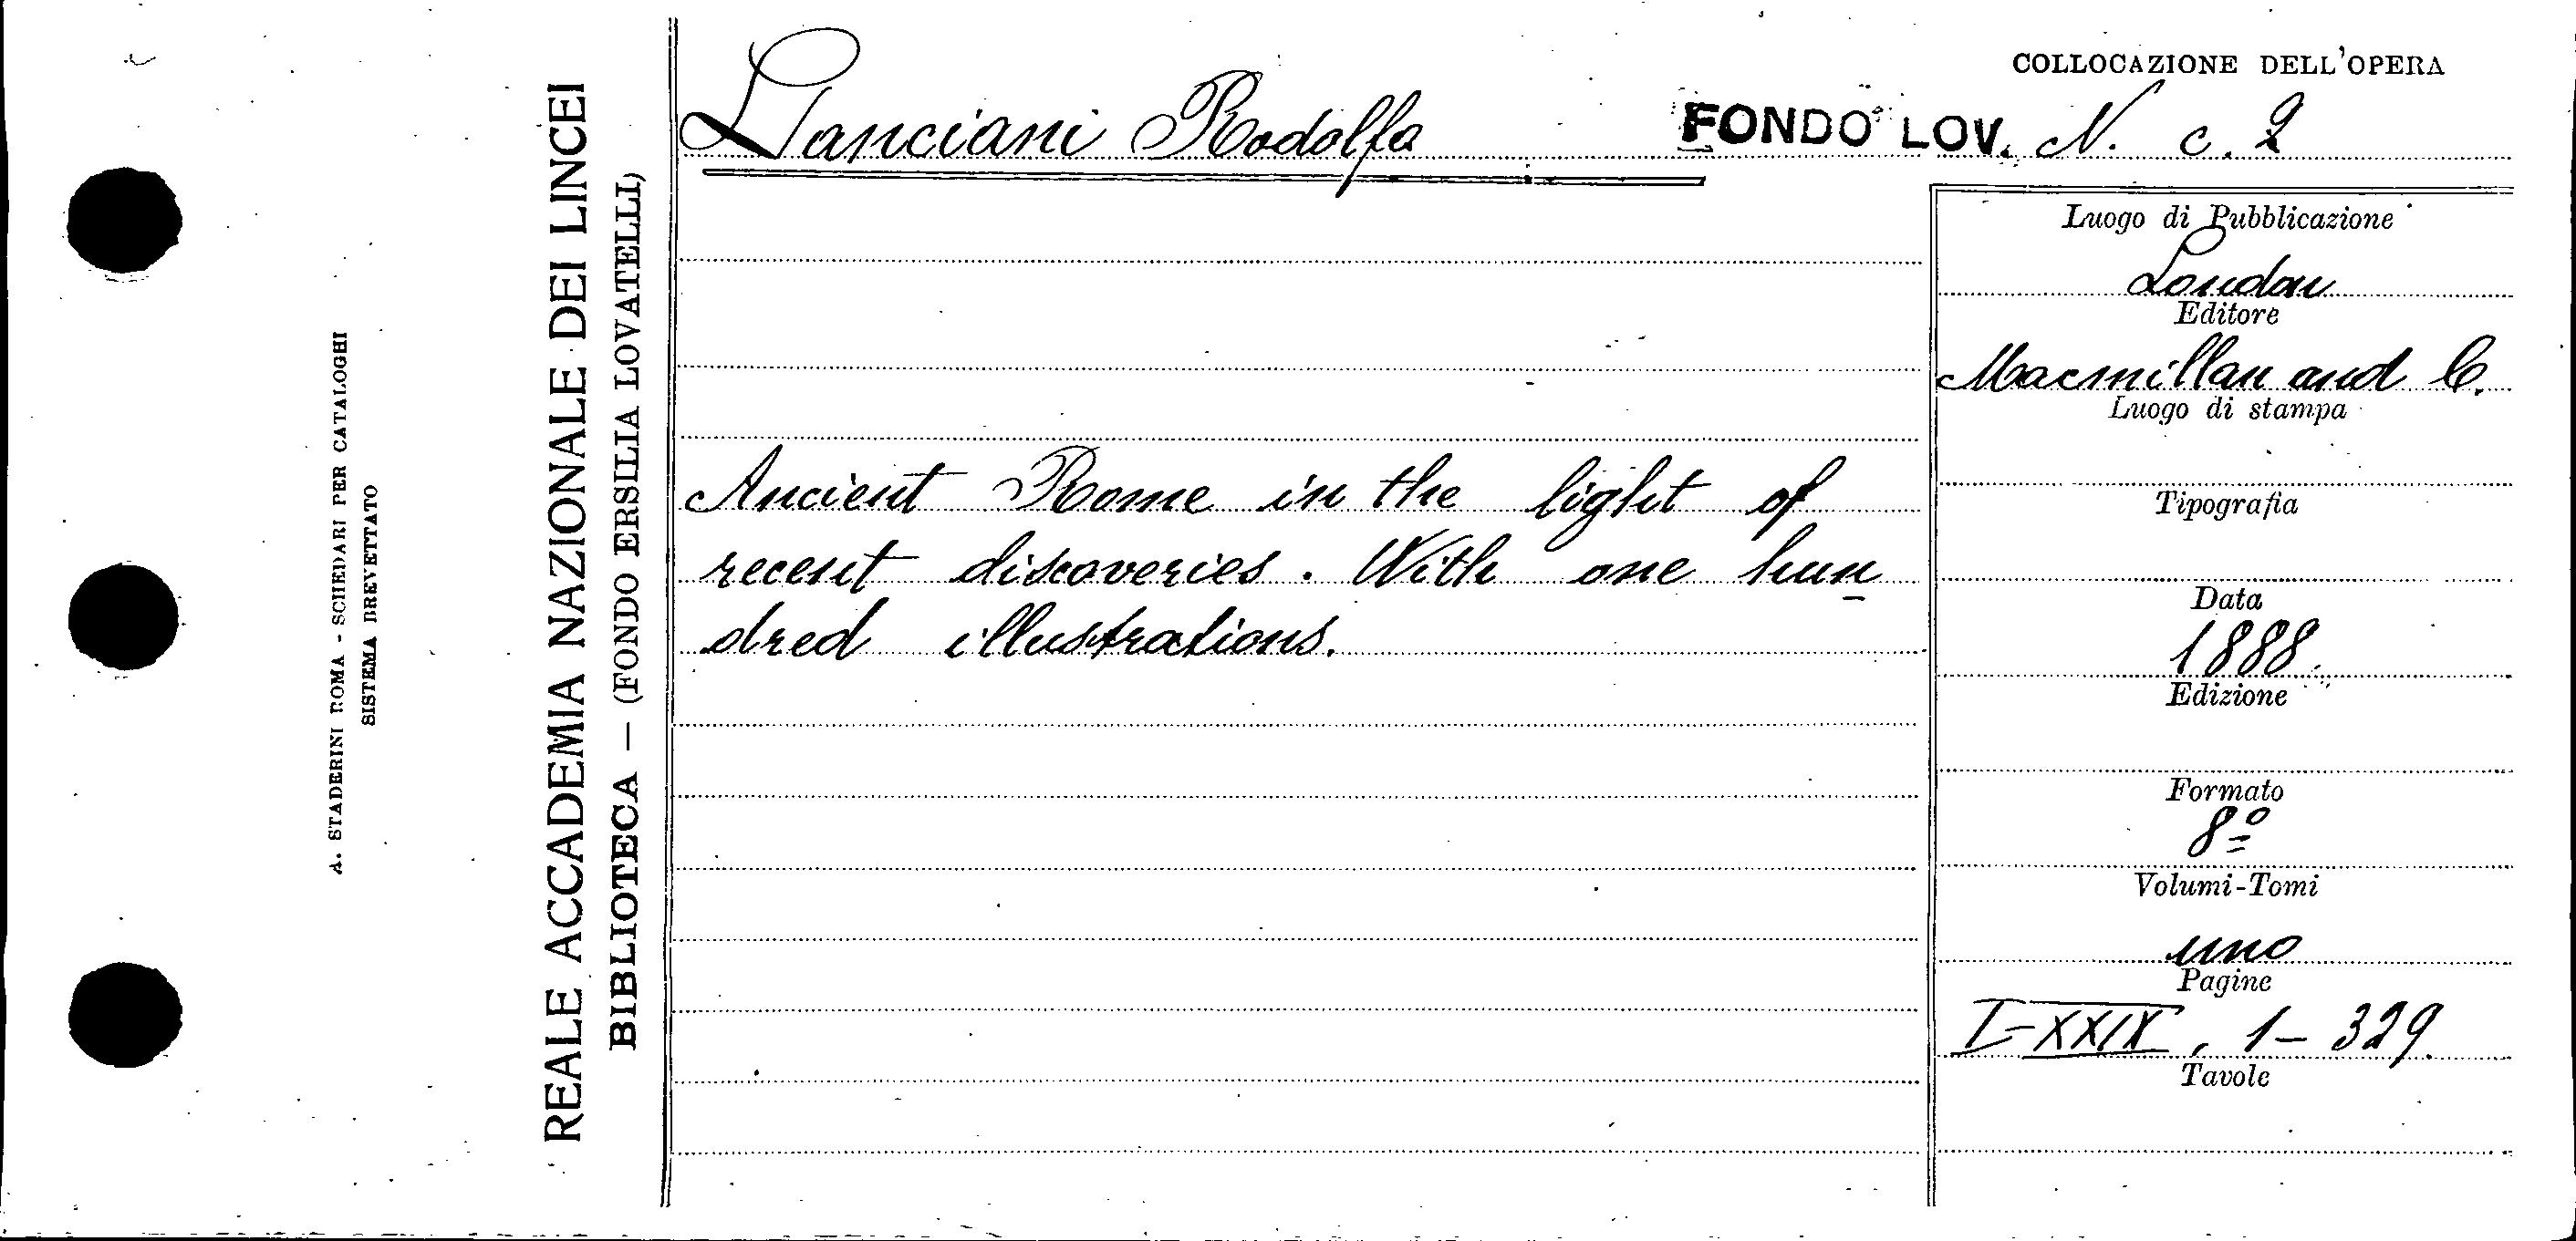 A. STADERINI ROMA - SCHEDARI PER CATALOGHI
SISTEMA BREVETTATO
REALE ACCADEMIA NAZIONALE DEI LINCEI
BIBLIOTECA — (FONDO ERSILIA LOVATELLI)
Lanciani Rodolfo
COLLOCAZIONE DELL'OPERA
FONDO LOV. N. c. 2
Ancient Rome in the light of
recent discoveries. With one hun
dred illustrations.
Luogo di Pubblicazione
London
Editore
Macmillan and C.
Luogo di stampa
Tipografia
Data
1888.
Edizione
Formato
8º
Volumi-Tomi
uno
Pagine
I-XXIX, 1-329.
Tavole